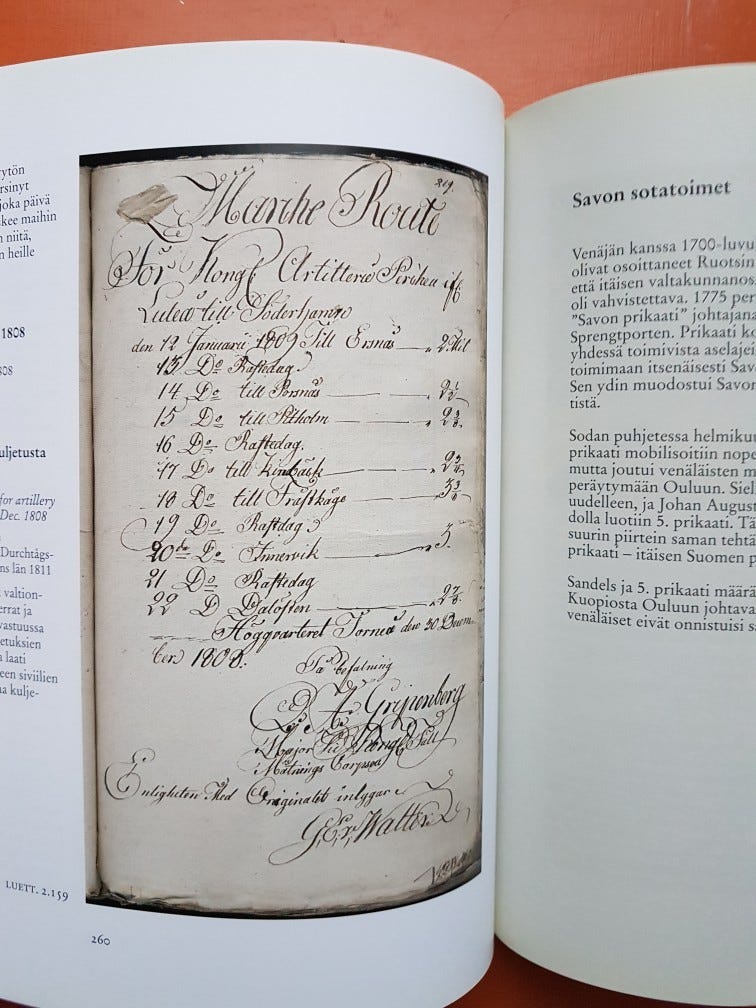 ytön
rsinyt
joka päivä
skee maihin
n niitä,
n heille
1808
808
uljetusta
for artillery
Dec. 1808
n
Durchtågs-
ns län 1811
t valtion-
errat ja
vastuussa
etuksien
laati
een siviilien
a kulje-
LUETT. 2.159
219.
Marche Route
För Kongl Artilleriæ
Luleå till Söderhamn
den 12 Januarii 1809 Till Ersnäs 2 Mil
13 Do Rastedag
14 Do till Persnäs 2½
15 Do till Pitholm
16 Do Rastedag.
17 Do till Kinbäck
18 Do till Fråstkåge
19 Do Rastdag
20de Do Innervik 3.
21 Do Rastedag
22 D Daløsten
Högqvarteret Torneå den 30 Decem
ber 1808.
På befallning
A. Gripenberg
Major vid Kongl Fält
Mätnings Corpsen
Enligheten Med Originalet intygar
Walter
260
Savon sotatoimet
Venäjän kanssa 1700-luvu
olivat osoittaneet Ruotsin
että itäisen valtakunnanos
oli vahvistettava. 1775 per
"Savon prikaati" johtajana
Sprengtporten. Prikaati ko
yhdessä toimivista aselajei
toimimaan itsenäisesti Sav
Sen ydin muodostui Savon
tistä.
Sodan puhjetessa helmikun
prikaati mobilisoitiin nope
mutta joutui venäläisten m
peräytymään Ouluun. Siel
uudelleen, ja Johan August
dolla luotiin 5. prikaati. Tä
suurin piirtein saman tehtä
prikaati – itäisen Suomen p
Sandels ja 5. prikaati määrä
Kuopiosta Ouluun johtava
venäläiset eivät onnistuisi sa